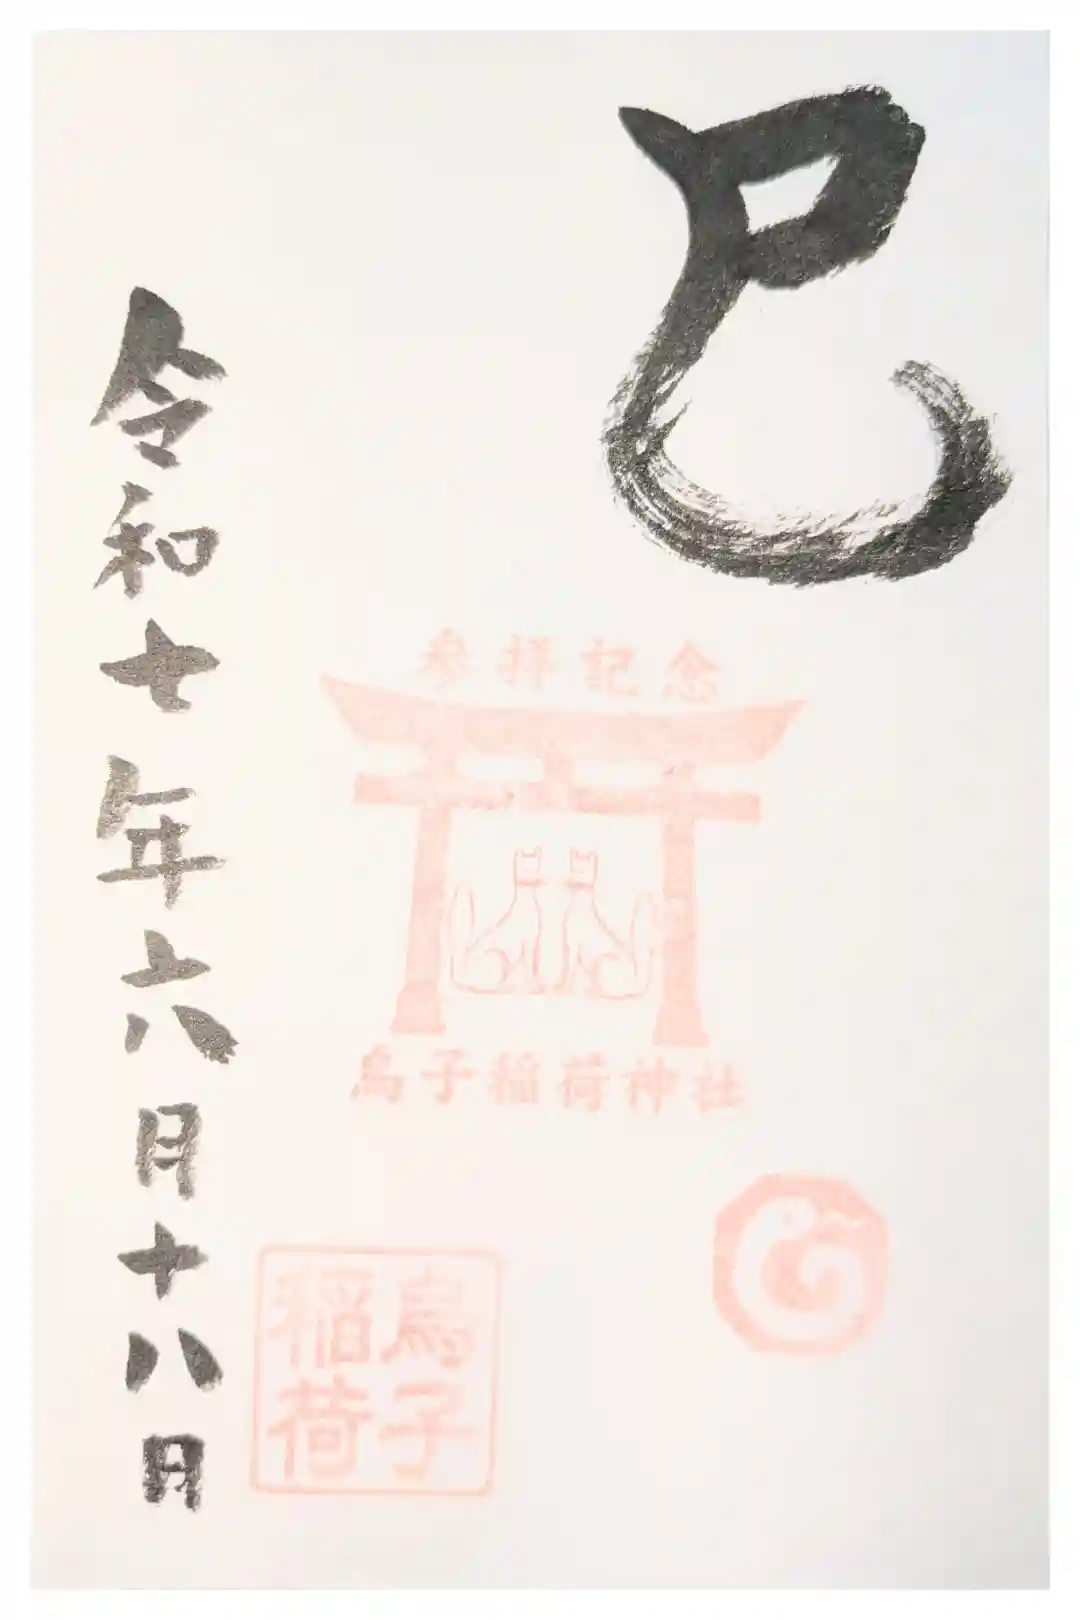 巳
参拝記念
烏子稲荷神社
烏子
稲荷
令和七年六月十八日